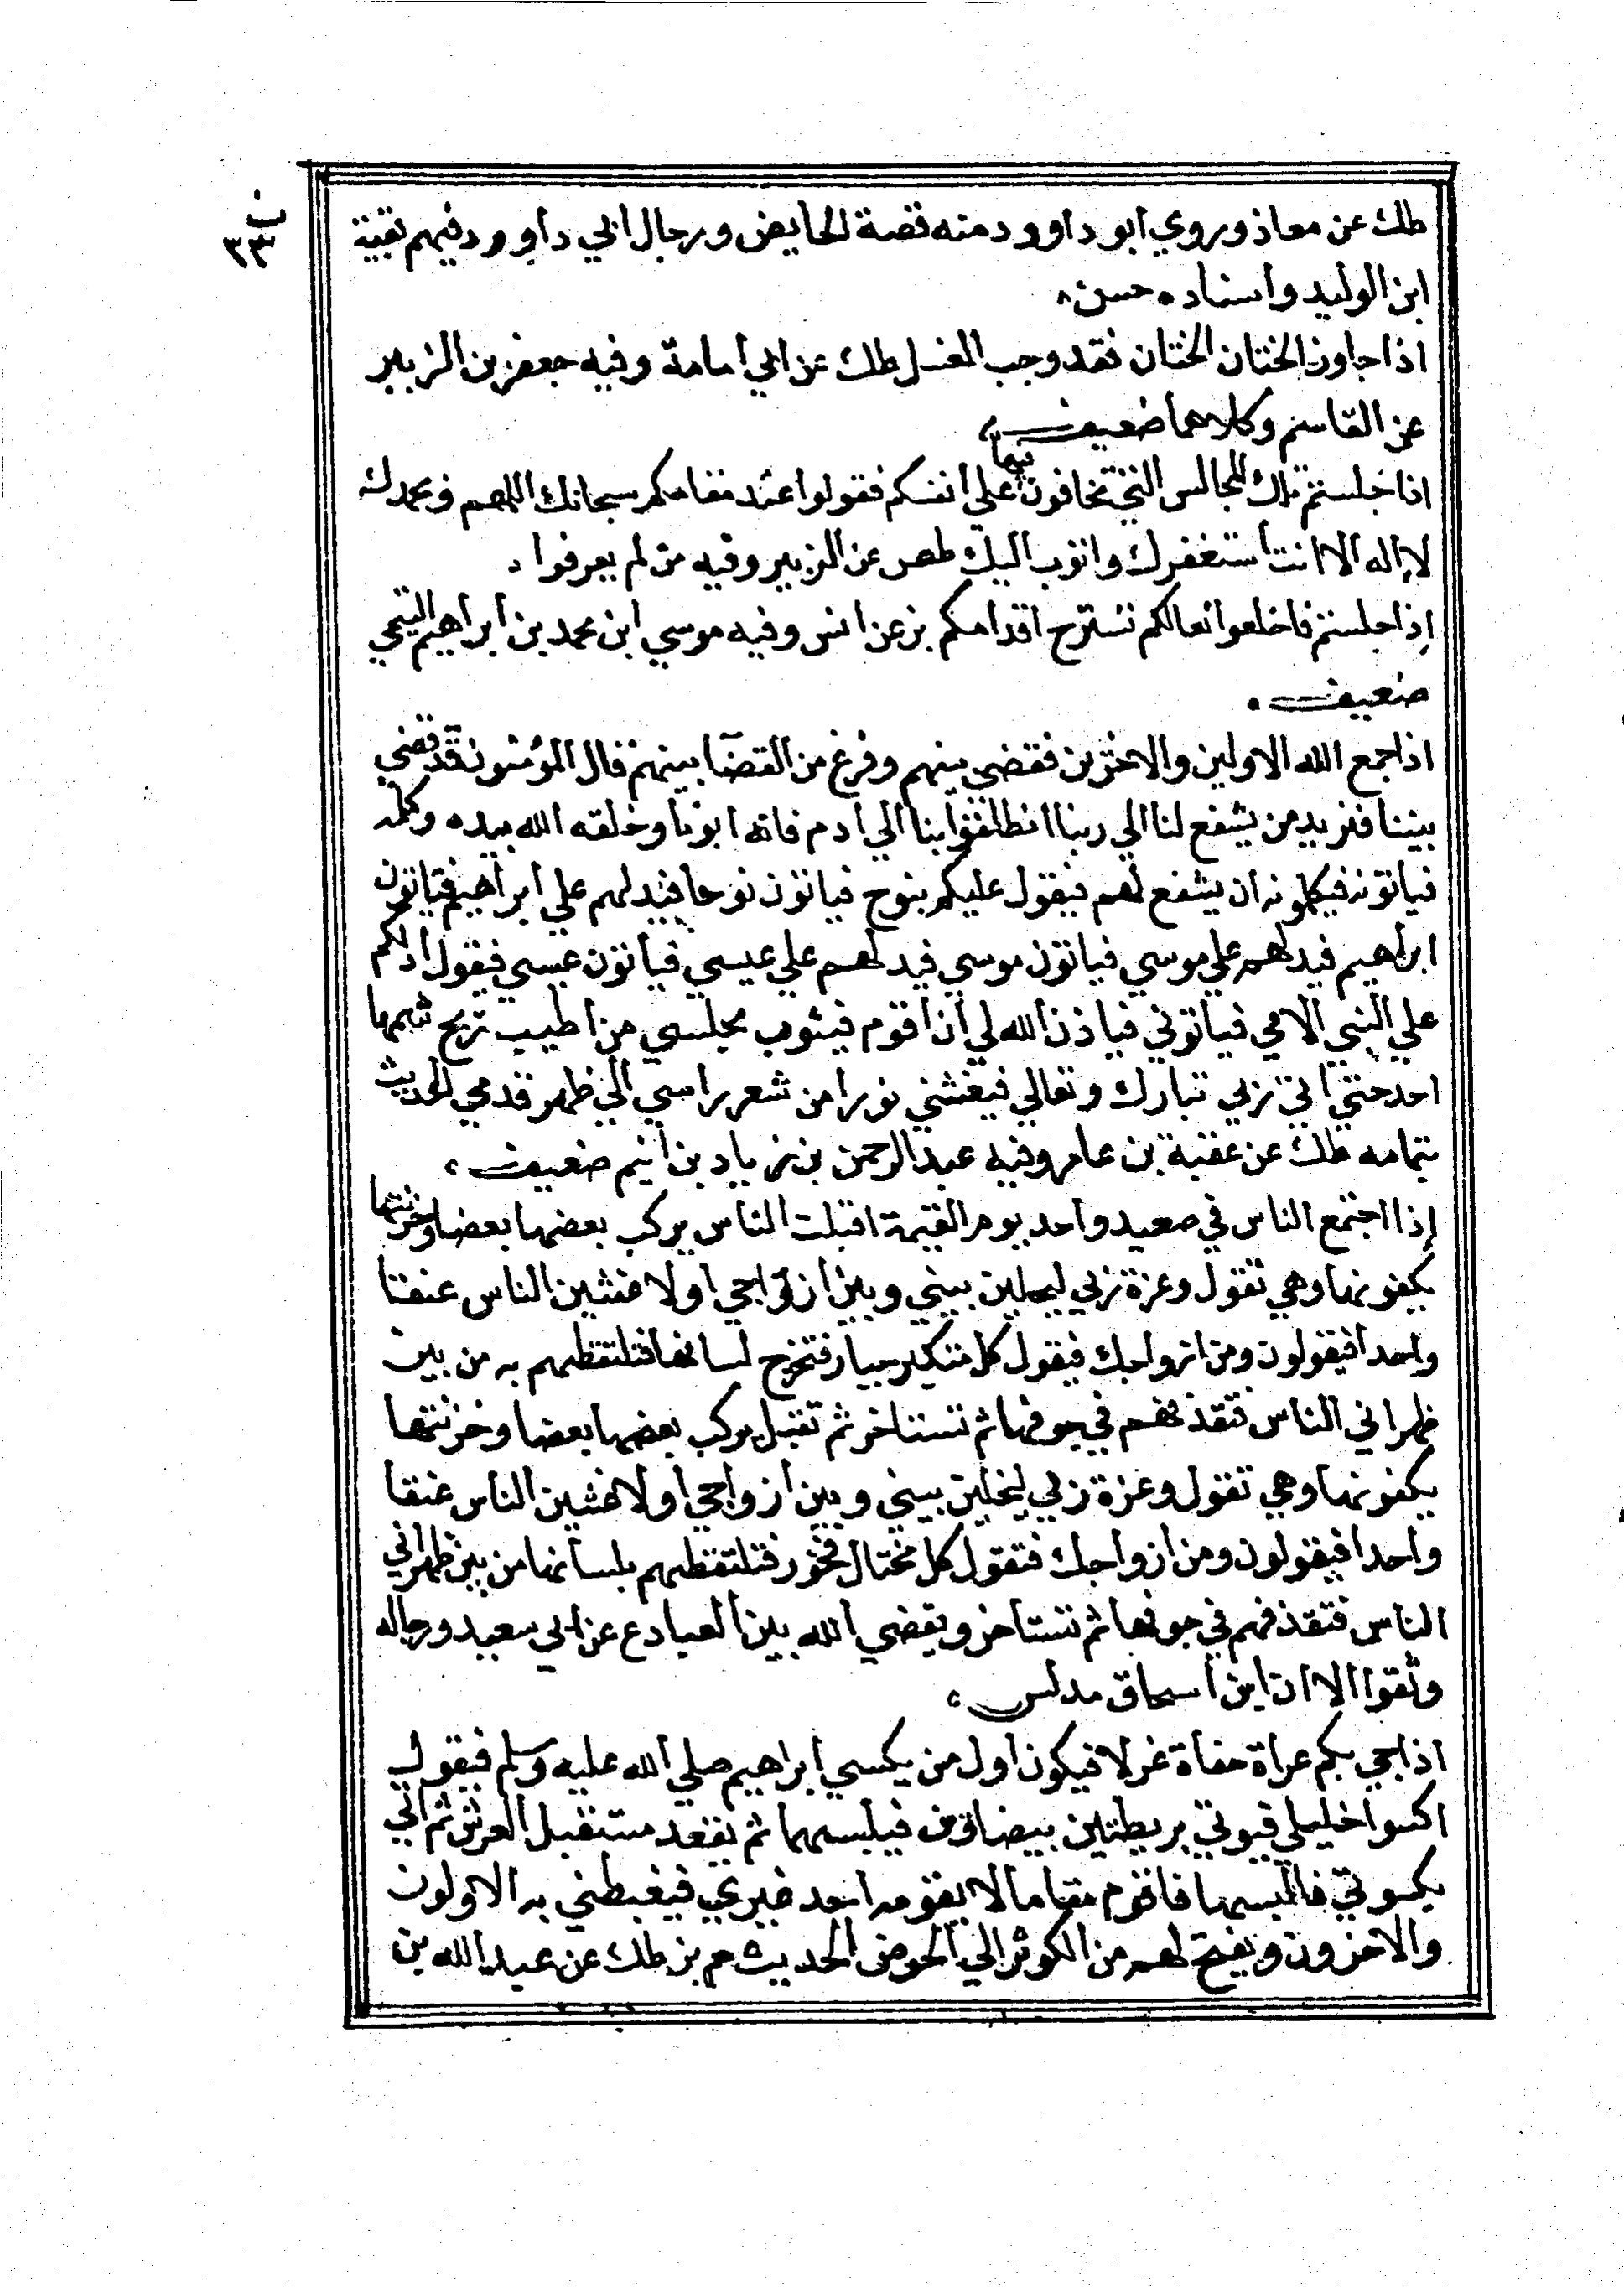 ب
٣٣
طك عن معاذ وروي ابو داوود منه قصة الحايض ورجال ابي داوود فيهم بقية
ابن الوليد واسناده حسن
اذا جاوز الختان الختان فقد وجب الغسل طك عن ابي امامة وفيه جعفر بن الزبير
عن القاسم وكلاهما ضعيف
اذا جلستم تلك المجالس التي تخافون فيها علي انفسكم فقولوا عند مقامكم سبحانك اللهم وبحمدك
لا اله الا انت استغفرك واتوب اليك طص عن الزبير وفيه من لم يعرفوا
اذا جلستم فاخلعوا نعالكم تسترح اقدامكم بز عن انس وفيه موسي ابن محمد بن ابراهيم التيمي
ضعيف
اذا جمع الله الاولين والاخرين فقضي بينهم وفرغ من القضا بينهم قال المؤمنون قد قضي
بيننا فنريد من يشفع لنا الي ربنا انطلقوا بنا الي ادم فانه ابونا وخلقه الله بيده وكلمه
فياتونه فيكلمونه ان يشفع لهم فيقول عليكم بنوح فياتون نوحا فيدلهم علي ابراهيم فياتون
ابراهيم فيدلهم علي موسي فياتون موسي فيدلهم علي عيسي فياتون عيسي فيقول ادلكم
علي النبي الامي فياتوني فياذن الله لي ان اقوم فيثور مجلسي من اطيب ريح شمها
احد حتي اتي ربي تبارك وتعالي فيغشني نورا من شعر راسي الي ظهر قدمي الحديث
بتمامه طك عن عقبة بن عامر وفيه عبد الرحمن بن زياد بن انعم ضعيف
إذا اجتمع الناس في صعيد واحد يوم القيمة اقبلت الناس يركب بعضها بعضا وخزنتها
يكفونها وهي تقول وعزة ربي ليخلين بيني وبين ازواجي او لاغشين الناس عنقا
واحدا فيقولون ومن ازواجك فيقول كل متكبر جبار فتخرج لسانها فتلتقطهم به من بين
ظهراني الناس فتقذفهم في جوفها ثم تستاخر ثم تقبل يركب بعضها بعضا وخزنتها
يكفونها وهي تقول وعزة ربي ليخلين بيني وبين ازواجي او لاغشين الناس عنقا
واحدا فيقولون ومن ازواجك فتقول كل مختال فخور فتلتقطهم بلسانها من بين ظهراني
الناس فتقذفهم في جوفها ثم تستاخر ويقضي الله بين العباد ع عن ابي سعيد ورجاله
وثقوا الا ان ابن اسحاق مدلس
اذا جي بكم عراة حفاة غرلا فيكون اول من يكسي ابراهيم صلي الله عليه وسلم فيقول
اكسوا خليلي فيوتي بريطتين بيضاوين فيلبسهما ثم يقعد مستقبل العرش ثم اتي
بكسوتي فالبسها فاقوم مقاما لا يقومه احد غيري فيغبطني به الاولون
والاخرون ويفتح لهم من الكوثر الي الحوض الحديث حم بز طك عن عبد الله بن